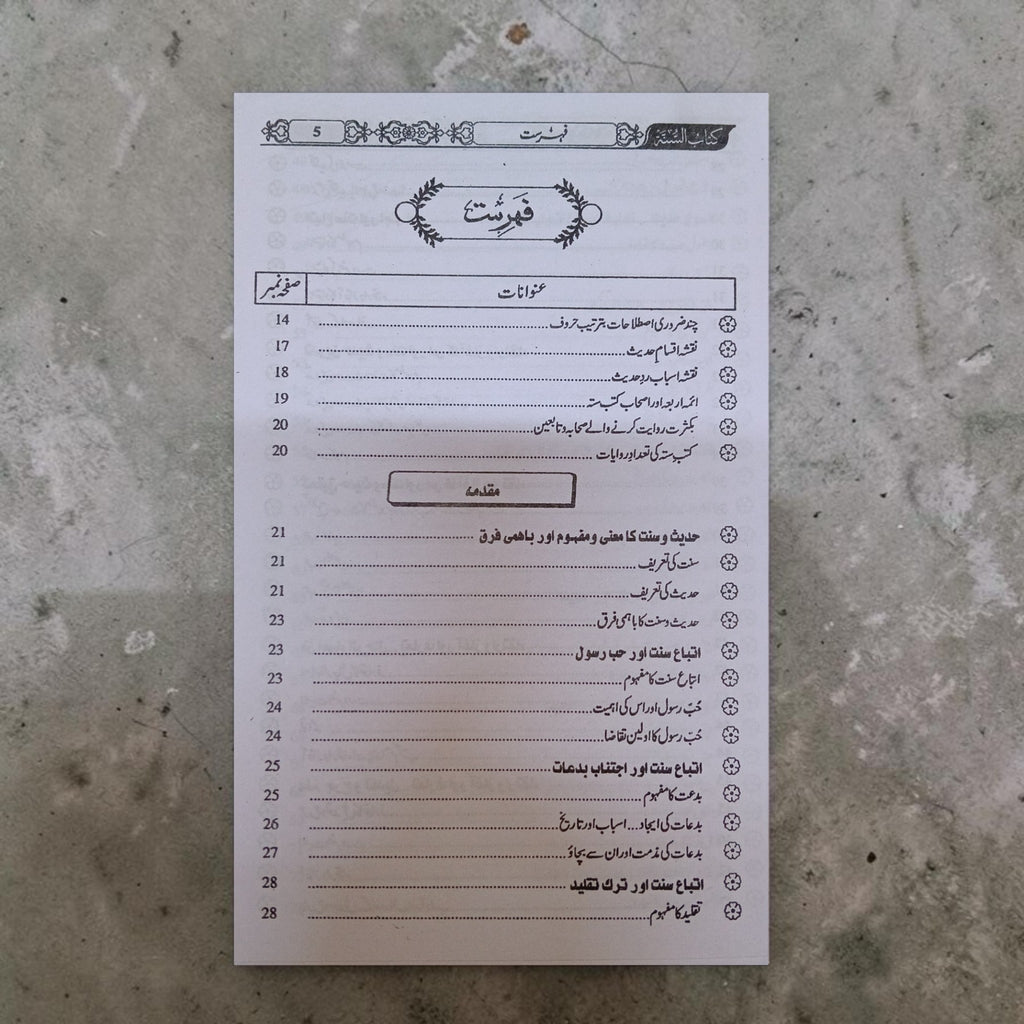 كتاب السنة فہرست 5
فَہرِست
عنوانات صفحہ نمبر
چند ضروری اصطلاحات بترتیب حروف 14
نقشہ اقسام حدیث 17
نقشہ اسباب ردِ حدیث 18
ائمہ اربعہ اور اصحاب کتب ستہ 19
بکثرت روایت کرنے والے صحابہ و تابعین 20
کتب ستہ کی تعداد روایات 20
مقدمہ
حدیث و سنت کا معنی و مفہوم اور باهمی فرق 21
سنت کی تعریف 21
حدیث کی تعریف 21
حدیث و سنت کا باہمی فرق 23
اتباع سنت اور حب رسول 23
اتباع سنت کا مفہوم 23
حُبّ رسول اور اس کی اہمیت 24
حُبّ رسول کا اولین تقاضا 24
اتباع سنت اور اجتناب بدعات 25
بدعت کا مفہوم 25
بدعات کی ایجاد ... اسباب اور تاریخ 26
بدعات کی مذمت اور ان سے بچاؤ 27
اتباع سنت اور ترك تقلید 28
تقلید کا مفہوم 28